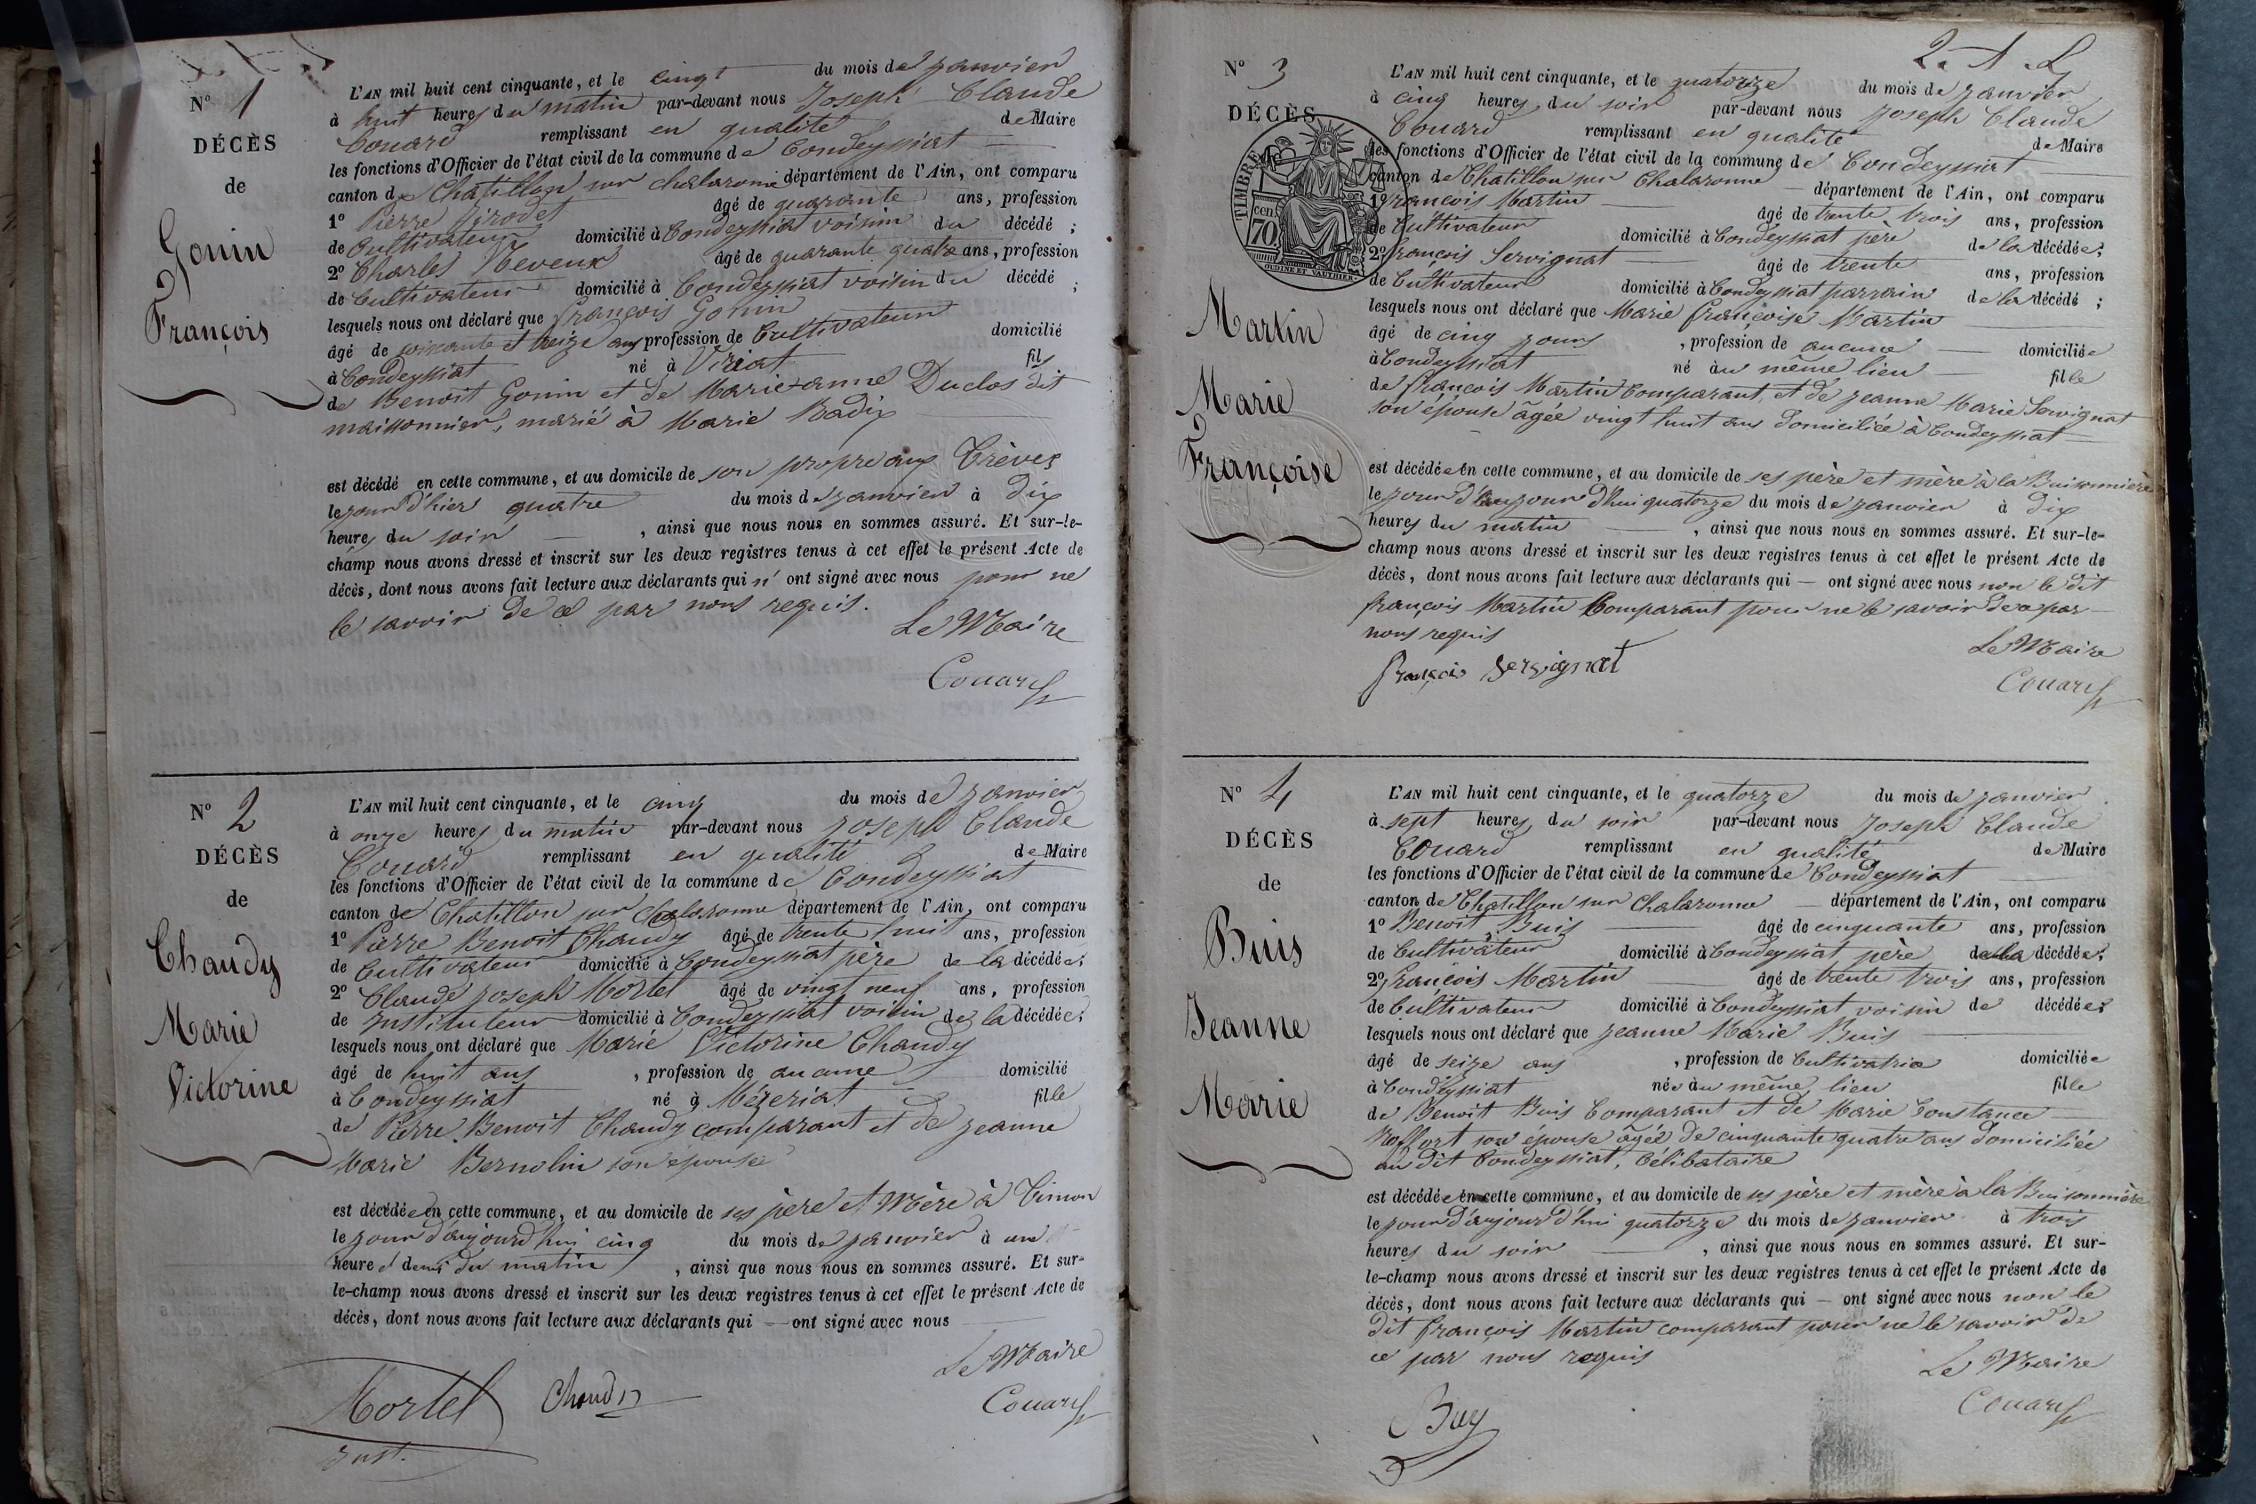 N° 1
DÉCÈS
de
Gonin
François
L'AN mil huit cent cinquante, et le cinq du mois de janvier
à huit heures du matin par-devant nous Joseph Claude
Couard remplissant en qualité de Maire
les fonctions d'Officier de l'état civil de la commune de Condeyssiat
canton de Chatillon sur chalaronne département de l'Ain, ont comparu
1° Pierre Girodet âgé de quarante ans, profession
de Cultivateur domicilié à Condeyssiat voisin du décédé ;
2° Charles Neveux âgé de quarante quatre ans, profession
de Cultivateur domicilié à Condeyssiat voisin du décédé ;
lesquels nous ont déclaré que françois Gonin
âgé de soixante et treize ans profession de Cultivateur domicilié
à Condeyssiat né à Viriat fils
de Benoit Gonin et de Marie-anne Duclos dit
maissonnier, marié à Marie Badix
est décédé en cette commune, et au domicile de son propre aux Crèves
le jour d'hier quatre du mois de janvier à dix
heures du soir , ainsi que nous nous en sommes assuré. Et sur-le-
champ nous avons dressé et inscrit sur les deux registres tenus à cet effet le présent Acte de
décès, dont nous avons fait lecture aux déclarants qui n' ont signé avec nous pour ne
le savoir de ce par nous requis.
Le Maire
Couard
N° 2
DÉCÈS
de
Chaudy
Marie
Victorine
L'AN mil huit cent cinquante, et le cinq du mois de janvier
à onze heures du matin par-devant nous Joseph Claude
Couard remplissant en qualité de Maire
les fonctions d'Officier de l'état civil de la commune de Condeyssiat
canton de Chatillon sur chalaronne département de l'Ain, ont comparu
1° Pierre Benoit Chaudy âgé de trente huit ans, profession
de Cultivateur domicilié à Condeyssiat père de la décédée ;
2° Claude Joseph Mortel âgé de vingt neuf ans, profession
de Instituteur domicilié à Condeyssiat voisin de la décédée ;
lesquels nous ont déclaré que Marie Victorine Chaudy
âgé de huit ans , profession de aucune domicilié
à Condeyssiat né à Mézériat fille
de Pierre Benoit Chaudy comparant et de jeanne
Marie Bernolin son epouse
est décédée en cette commune, et au domicile de ses père et Mère à Cimon
le jour d'aujourd'hui cinq du mois de janvier à une
heure et demi du matin , ainsi que nous nous en sommes assuré. Et sur-
le-champ nous avons dressé et inscrit sur les deux registres tenus à cet effet le présent Acte de
décès, dont nous avons fait lecture aux déclarants qui — ont signé avec nous
Le Maire
Mortel Chaudy Couard
Inst.
N° 3
DÉCÈS
TIMBRE
cen
70
OUDINE ET VAUTHIER
Martin
Marie
Françoise
L'AN mil huit cent cinquante, et le quatorze du mois de janvier
à cinq heures du soir par-devant nous Joseph Claude
Couard remplissant en qualité de Maire
les fonctions d'Officier de l'état civil de la commune de Condeyssiat
canton de Chatillon sur Chalaronne département de l'Ain, ont comparu
1° françois Martin âgé de trente trois ans, profession
de Cultivateur domicilié à Condeyssiat père de la décédée ;
2° françois Servignat âgé de trente ans, profession
de Cultivateur domicilié à Condeyssiat parrain de la décédé ;
lesquels nous ont déclaré que Marie françoise Martin
âgé de cinq jours , profession de aucune domiciliée
à Condeyssiat né au même lieu fille
de françois Martin Comparant, et de jeanne Marie Servignat
son épouse âgée vingt huit ans domiciliée à Condeyssiat
est décédée en cette commune, et au domicile de ses père et mère à la Buisonnière
le jour d'aujourd'hui quatorze du mois de janvier à dix
heures du matin , ainsi que nous nous en sommes assuré. Et sur-le-
champ nous avons dressé et inscrit sur les deux registres tenus à cet effet le présent Acte de
décès, dont nous avons fait lecture aux déclarants qui — ont signé avec nous non le dit
françois Martin Comparant pour ne le savoir de ce par
nous requis
Le Maire
françois Servignat Couard
N° 4
DÉCÈS
de
Buis
Jeanne
Marie
L'AN mil huit cent cinquante, et le quatorze du mois de janvier
à sept heures du soir par-devant nous Joseph Claude
Couard remplissant en qualité de Maire
les fonctions d'Officier de l'état civil de la commune de Condeyssiat
canton de Chatillon sur Chalaronne département de l'Ain, ont comparu
1° Benoit Buis âgé de cinquante ans, profession
de Cultivateur domicilié à Condeyssiat père de la décédée ;
2° françois Martin âgé de trente trois ans, profession
de Cultivateur domicilié à Condeyssiat voisin de décédée ;
lesquels nous ont déclaré que jeanne Marie Buis
âgé de seize ans , profession de Cultivatrice domiciliée
à Condeyssiat née au même lieu fille
de Benoit Buis Comparant et de Marie Constance
Noffort son épouse âgée de cinquante quatre ans domiciliée
au dit Condeyssiat, Célibataire
est décédée en cette commune, et au domicile de ses père et mère à la Buisonnière
le jour d'aujourd'hui quatorze du mois de janvier à trois
heures du soir , ainsi que nous nous en sommes assuré. Et sur-
le-champ nous avons dressé et inscrit sur les deux registres tenus à cet effet le présent Acte de
décès, dont nous avons fait lecture aux déclarants qui — ont signé avec nous non le
dit françois Martin comparant pour ne le savoir de
ce par nous requis
Le Maire
Buy Couard